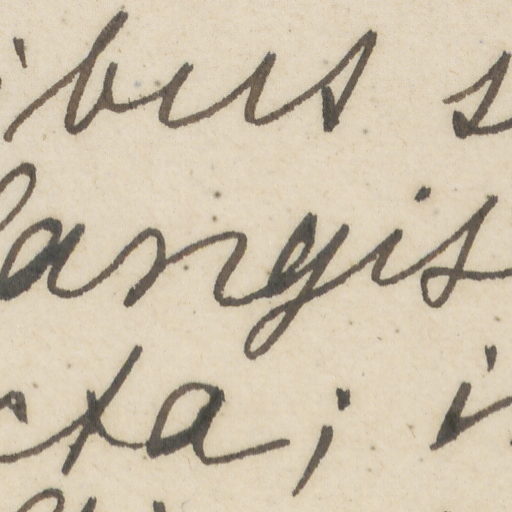 ibus s
langis
cta; i